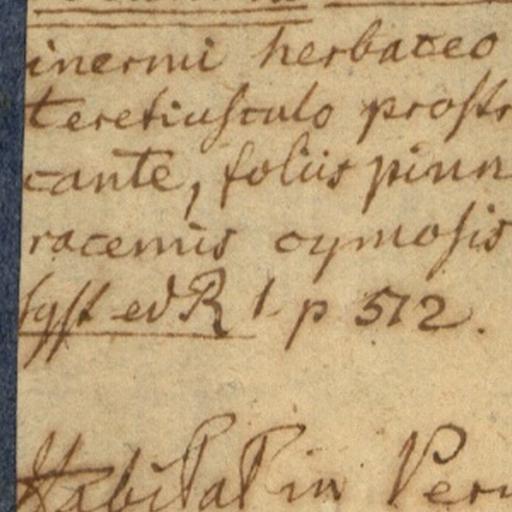 inermi herbaceo
teretiusculo prostr
cante, foliis pinn
racemis cymosis
syst ed R 1 p 512.
Habitat in Peru